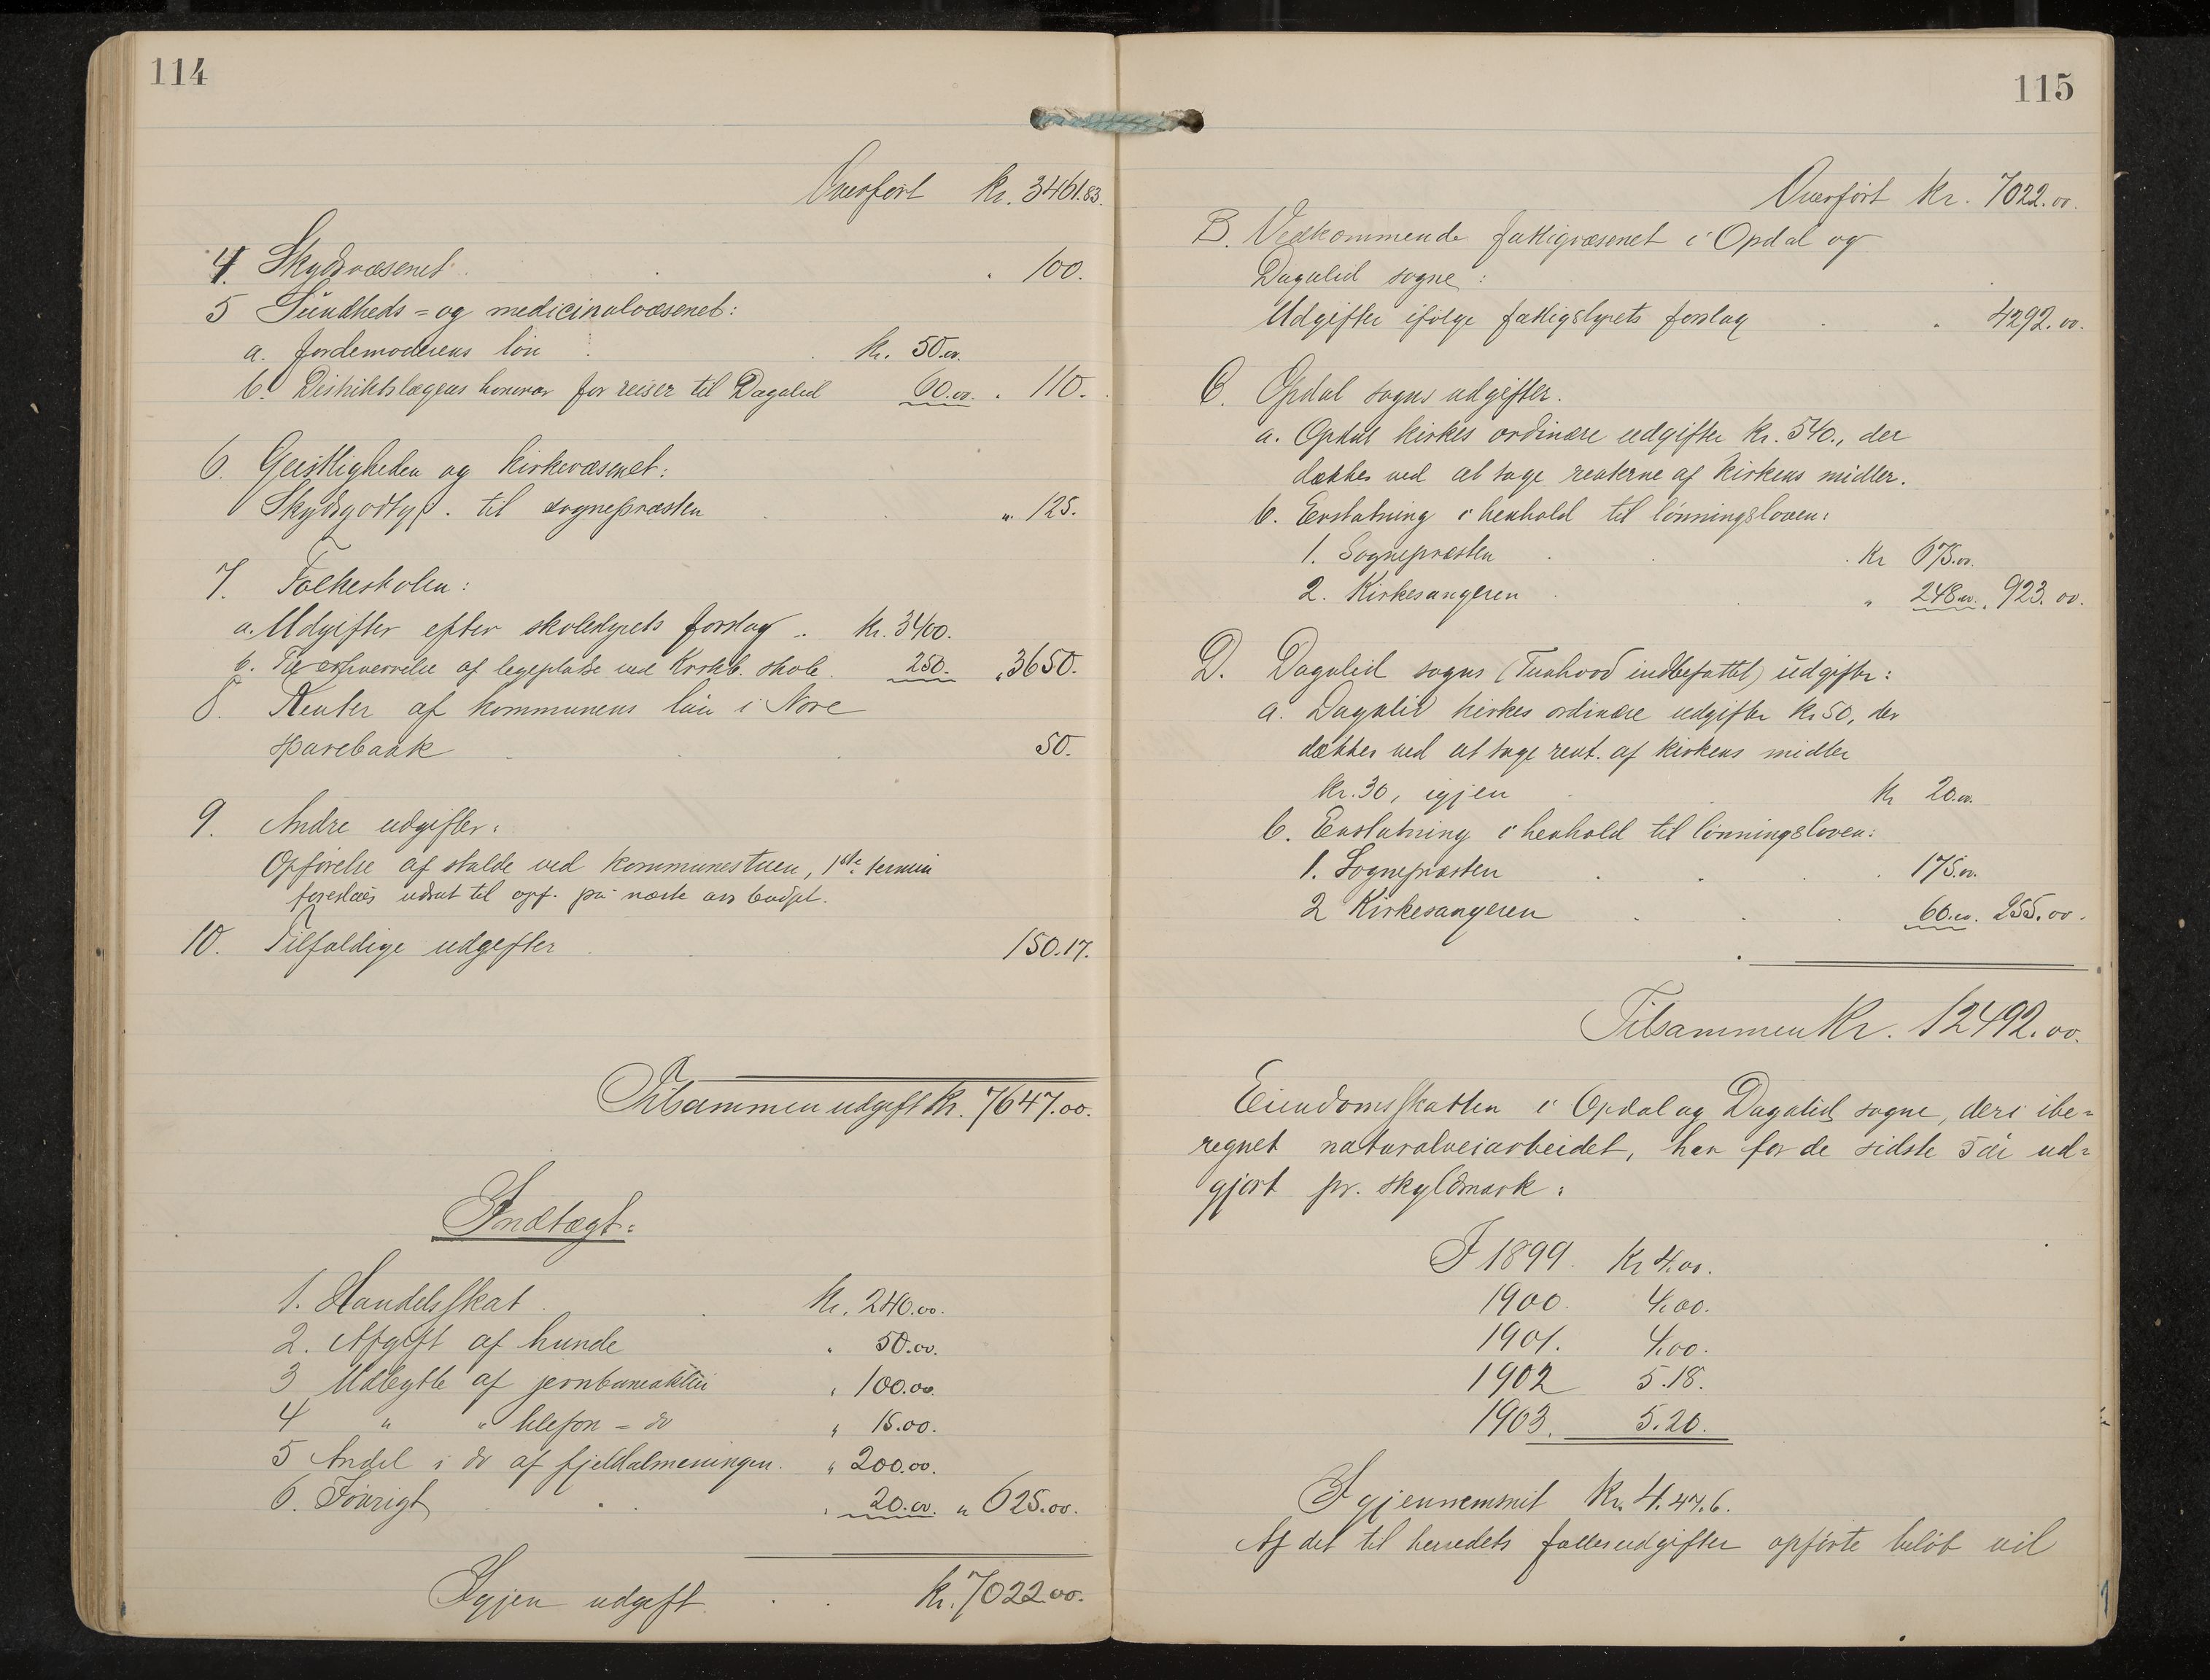 114
Overført kr. 3461.83.
4. Skydsvæsenet . . 100.
5 Sundheds= og medicinalvæsenet:
a. Jordemoderens løn . kr. 50.00.
b. Distriktslægens honorar for reiser til Dagalid 60.00. . 110.
6. Geistligheden og kirkevæsenet:
Skydsgodtg. til sognepræsten " 125.
7. Folkeskolen:
a. Udgifter efter skolestyrets forslag .. kr. 3400.
b. Til erhvervelse af legeplatse ved Kirkb. skole. 250. "3650.
8. Renter af kommunens lån i Nore
sparebank 50.
9. Andre udgifter:
Opførelse af stalde ved kommunestuen, 1ste termin
foreslåes udsat til opf. på næste års budget.
10. Tilfældige udgifter 150.17.
Tilsammen udgift kr. 7647.00.
Indtægt:
1. Handelsskat . kr. 240.00.
2. Afgift af hunde " 50.00.
3 Udbytte af jernbaneaktier " 100.00.
4 " " telefon = do " 15.00.
5 Andel i do af fjeldalmeningen. " 200.00.
6. Forøvrigt . . " 20.00. " 625.00.
Igjen udgift . . kr. 7022.00.
115
Overført kr. 7022.00.
B. Vedkommende fattigvæsenet i Opdal og
Dagalid sogne:
Udgifter ifølge fattigstyrets forslag . . 4292.00.
C. Opdal sogns udgifter.
a. Opdal kirkes ordinære udgifter kr. 540., der
dækkes ved at tage renterne af kirkens midler.
b. Erstatning i henhold til lønningsloven:
1. Sognepræsten . . kr 675.00.
2. Kirkesangeren . " 248.00. " 923.00.
D. Dagalid sogns (Tunhovd indbefattet) udgifter:
a. Dagalid kirkes ordinære udgifter kr 50, der
dækkes ved at tage rent. af kirkens midler
kr. 30, igjen kr 20.00.
b. Erstatning i henhold til lønningsloven:
1. Sognepræsten . . . . 175.00.
2 Kirkesangeren . . . 60.00. 255.00.
Tilsammen Kr. 12492.00.
Eiendomsskatten i Opdal og Dagalid sogne, deri ibe=
regnet naturalveiarbeidet, har for de sidste 5 år ud=
gjort pr. skyldmark:
I 1899. Kr 4.00.
1900. 4.00.
1901. 4.00.
1902 5.18.
1903. 5.20.
I gjennemsnit Kr. 4.47.6.
Af det til herredets fællesudgifter opførte beløb vil